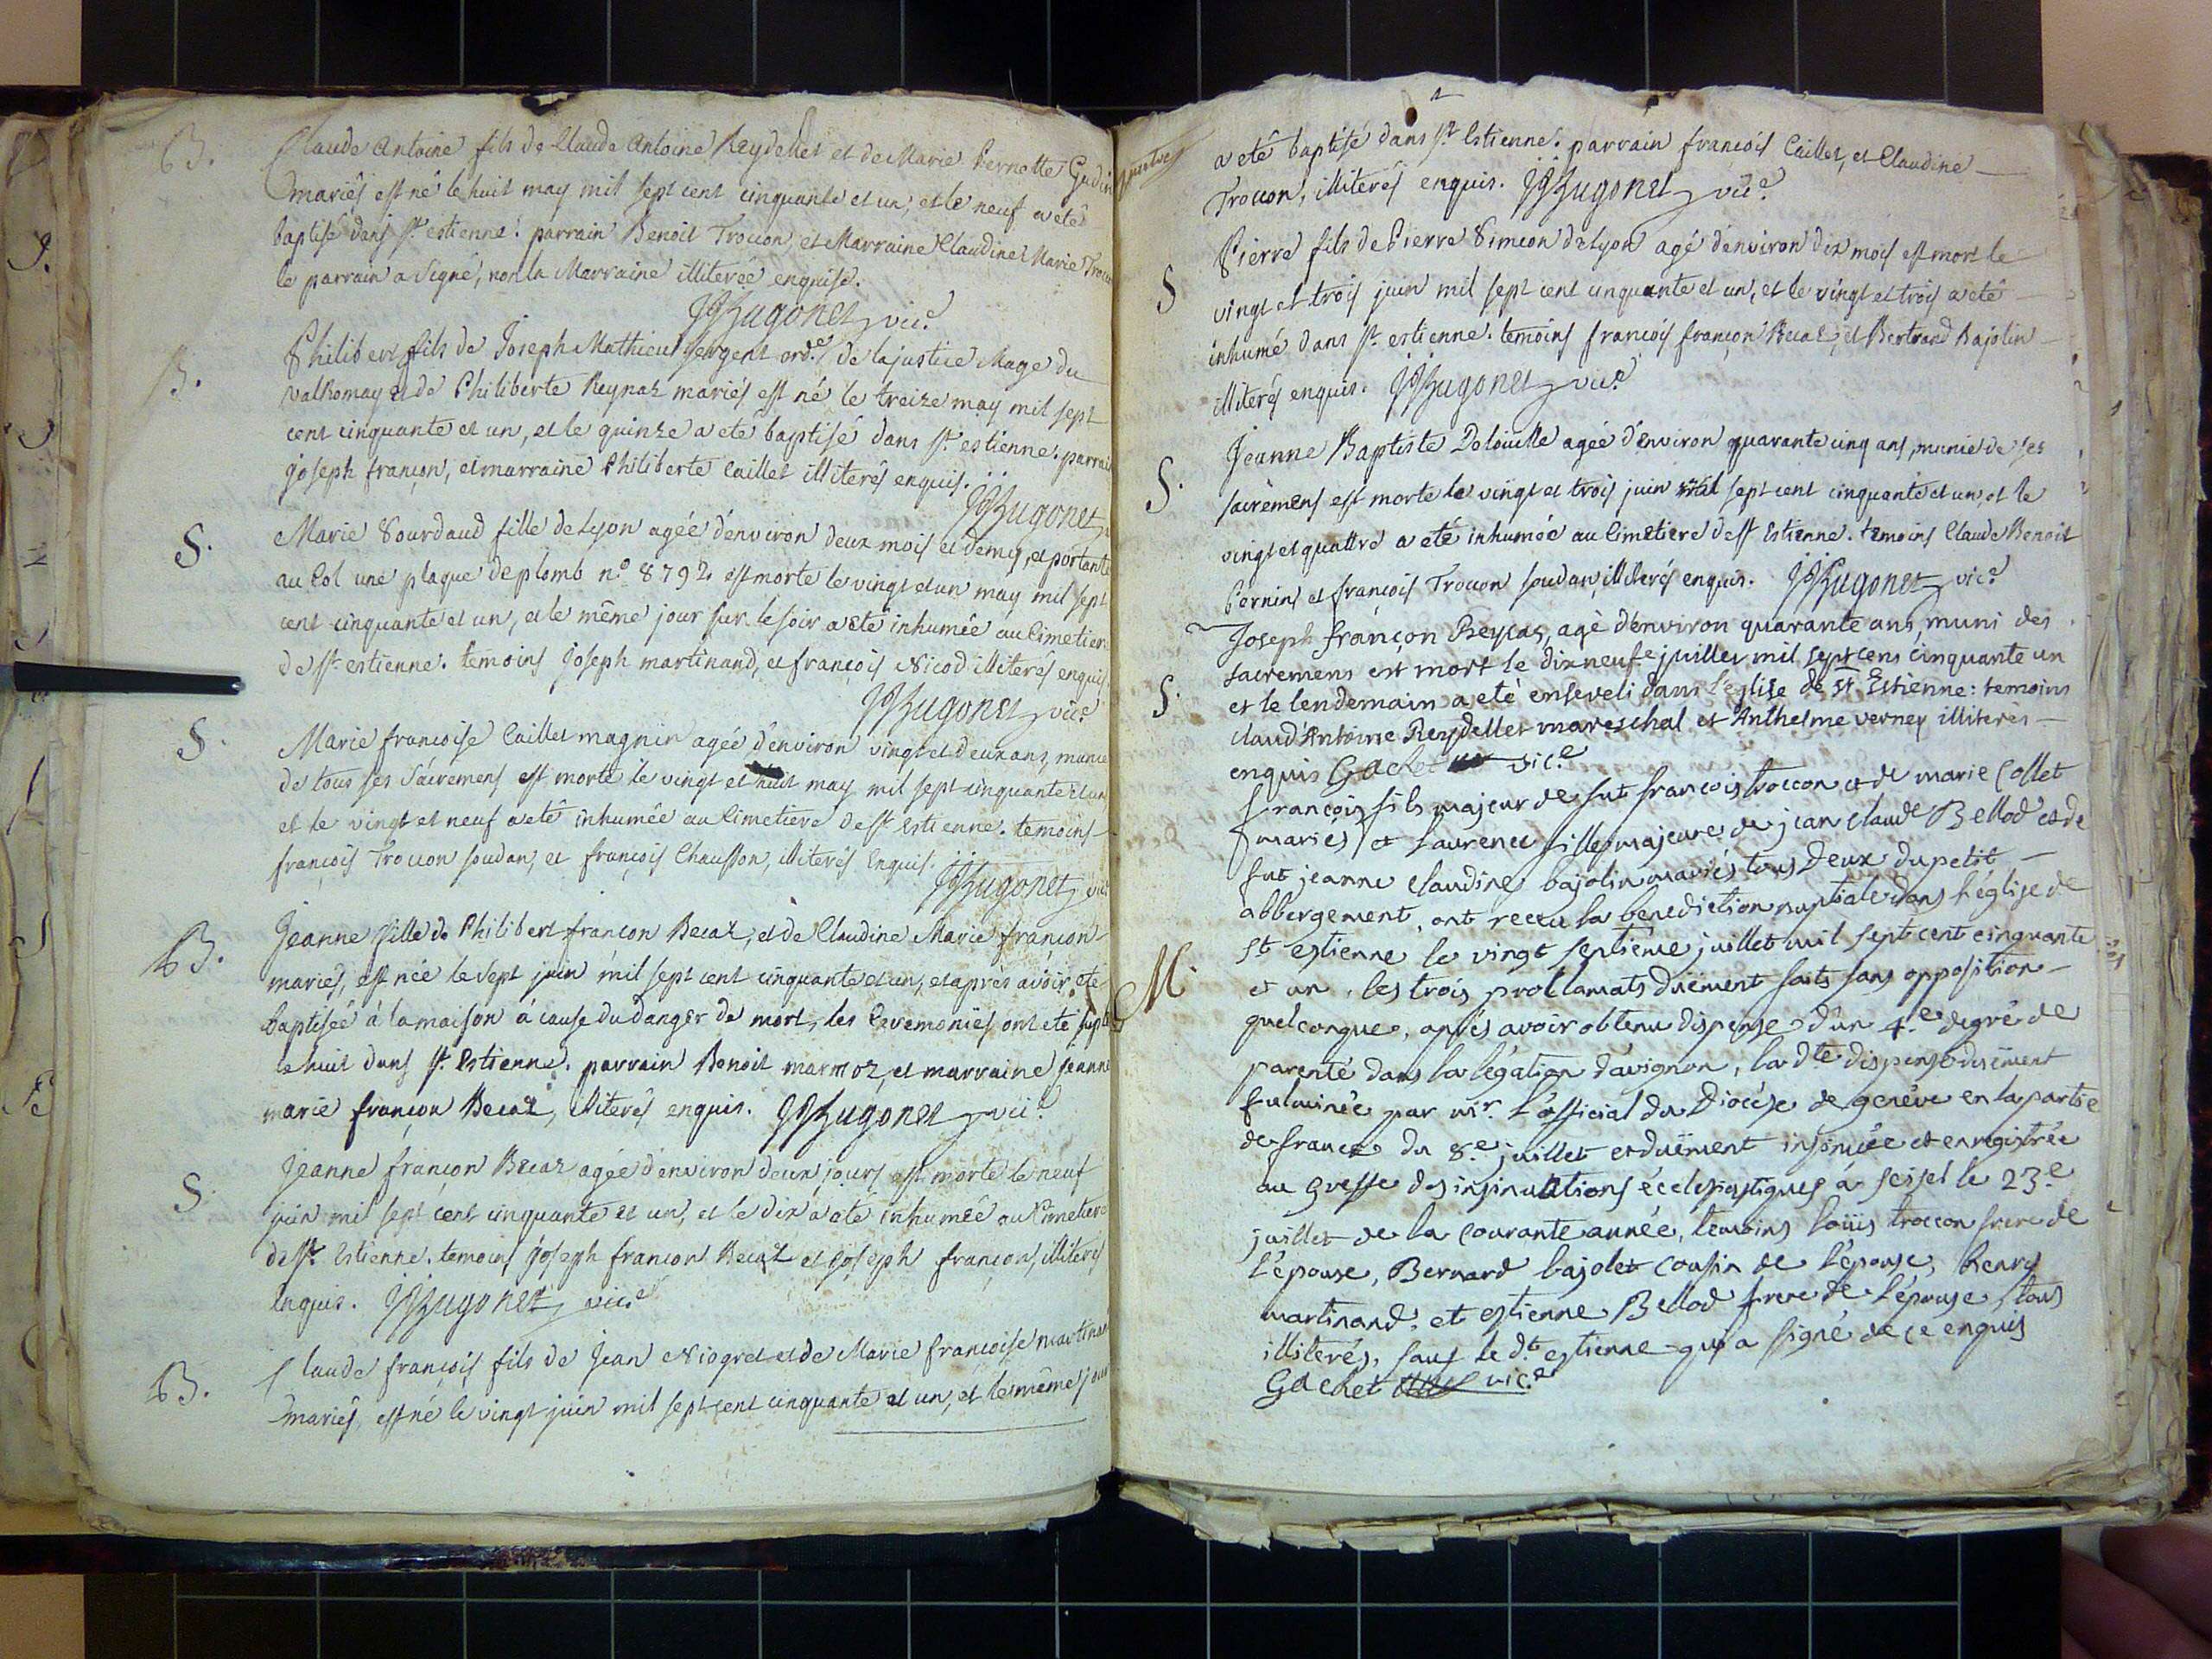 B. Claude Antoine fils de Claude Antoine Reydellet et de Marie Pernette Gudin
mariés est né le huit may mil sept cent cinquante et un, et le neuf a eté
baptisé dans st. estienne. parrain Benoit Troccon, et Marraine Claudine Marie Trocc
le parrain a signé, non la Marraine illiterée enquise.
JJBugonet vic.e
B. Philibert fils de Joseph Mathieu sergent ord.e de la justice Mage du
valRomay et de Philiberte Reynaz mariés est né le treize may mil sept
cent cinquante et un, et le quinze a eté baptisé dans st. estienne. parrai
joseph françon, et marraine Philiberte Caillet illiterés enquis.
JJBugonet
S. Marie Sourdaud fille de Lyon agée d'environ deux mois et demy, et portante
au Col une plaque de plomb n.o 8792. est morte le vingt et un may mil sept
cent cinquante et un, et le même jour sur le soir a eté inhumée au Cimetiere
de st. estienne. temoins Joseph martinand, et françois Nicod illiterés enquis
JJBugonet vic.e
S. Marie françoise Caillet magnin agée d'environ vingt et deux ans, munie
de tous ses Sacremens est morte le vingt et huit may mil sept cinquante et un
et le vingt et neuf a eté inhumée au Cimetiere de st. Estienne. temoins
françois Troccon soudan, et françois Chausson, illiterés Enquis.
JJBugonet vic
B. Jeanne fille de Philibert françon Becaz, et de Claudine Marie françon
mariés, est née le sept juin mil sept cent cinquante et un, et après avoir eté
baptisée à la maison à cause du danger de mort, les Ceremonies ont eté suplé
le huit dans st. Estienne. parrain Benoit marmoz, et marraine jeanne
marie françon Becaz, illiterés enquis. JJBugonet vic.
S. Jeanne françon Becaz agée d'environ deux jours est morte le neuf
juin mil sept cent cinquante et un, et le dix a eté inhumée au Cimetiere
de st. Estienne. temoins joseph françon Becaz et joseph françon, illiterés
enquis. JJBugonet vic.e
B. Claude françois fils de Jean Niogret et de Marie françoise martinan
mariés, est né le vingt juin mil sept cent cinquante et un, et le même jour
a eté baptisé dans st. Estienne. parrain françois Caillet, et Claudine
Troccon, illiterés enquis. JJBugonet vic.e
S Pierre fils de Pierre Simeon de Lyon agé d'environ dix mois est mort le
vingt et trois juin mil sept cent cinquante et un, et le vingt et trois a eté
inhumé dans st. estienne. temoins françois françon Becaz, et Bertrand Bajolin
illiterés enquis. JJBugonet vic.e
S. Jeanne Baptiste Delouille agée d'environ quarante cinq ans, munie de ses
sacremens est morte le vingt et trois juin mil sept cent cinquante et un, et le
vingt et quattre a eté inhumée au Cimetiere de st Estienne. temoins Claude Benoit
Pernin, et françois Troccon soudan, illiterés enquis. JJBugonet vic.e
S. Joseph françon Beycas, agé d'environ quarante ans, muni des
sacremens est mort le dix neufe juillet mil sept cens cinquante un
et le lendemain a eté enseveli dans l'eglise de st Estienne: temoins
claud'Antoine Reydellet mareschal et Anthelme verney illiterés
enquis Gachet vic.e
M. françois fils majeur de fut françois troccon et de marie Collet
mariés, et Laurence fille majeure de jean claude Bellod et de
fut jeanne claudine bajolin mariés tous deux du petit
abbergement, ont receu la benediction nuptiale dans l'église de
st estienne le vingt septieme juillet mil sept cent cinquante
et un, les trois proclamats düement faits sans opposition
quelconque, après avoir obtenu dispense d'un 4.e degré de
parenté dans la légation d'avignon, la d.te dispense düement
fulminée par mr. L'official du Diocèse de genève en la partie
de france du 8.e juillet et düement insinuée et enregistrée
au Greffe des insinuations écclesiastiques à seissel le 23.e
juillet de la courante année, temoins loüis troccon frere de
l'épouse, Bernard bajolet cousin de l'épouse, henry
martinand, et estienne Bellod frere de l'épouse, tous
illiterés, sauf le d.t estienne qui a signé de ce enquis
Gachet vic.e